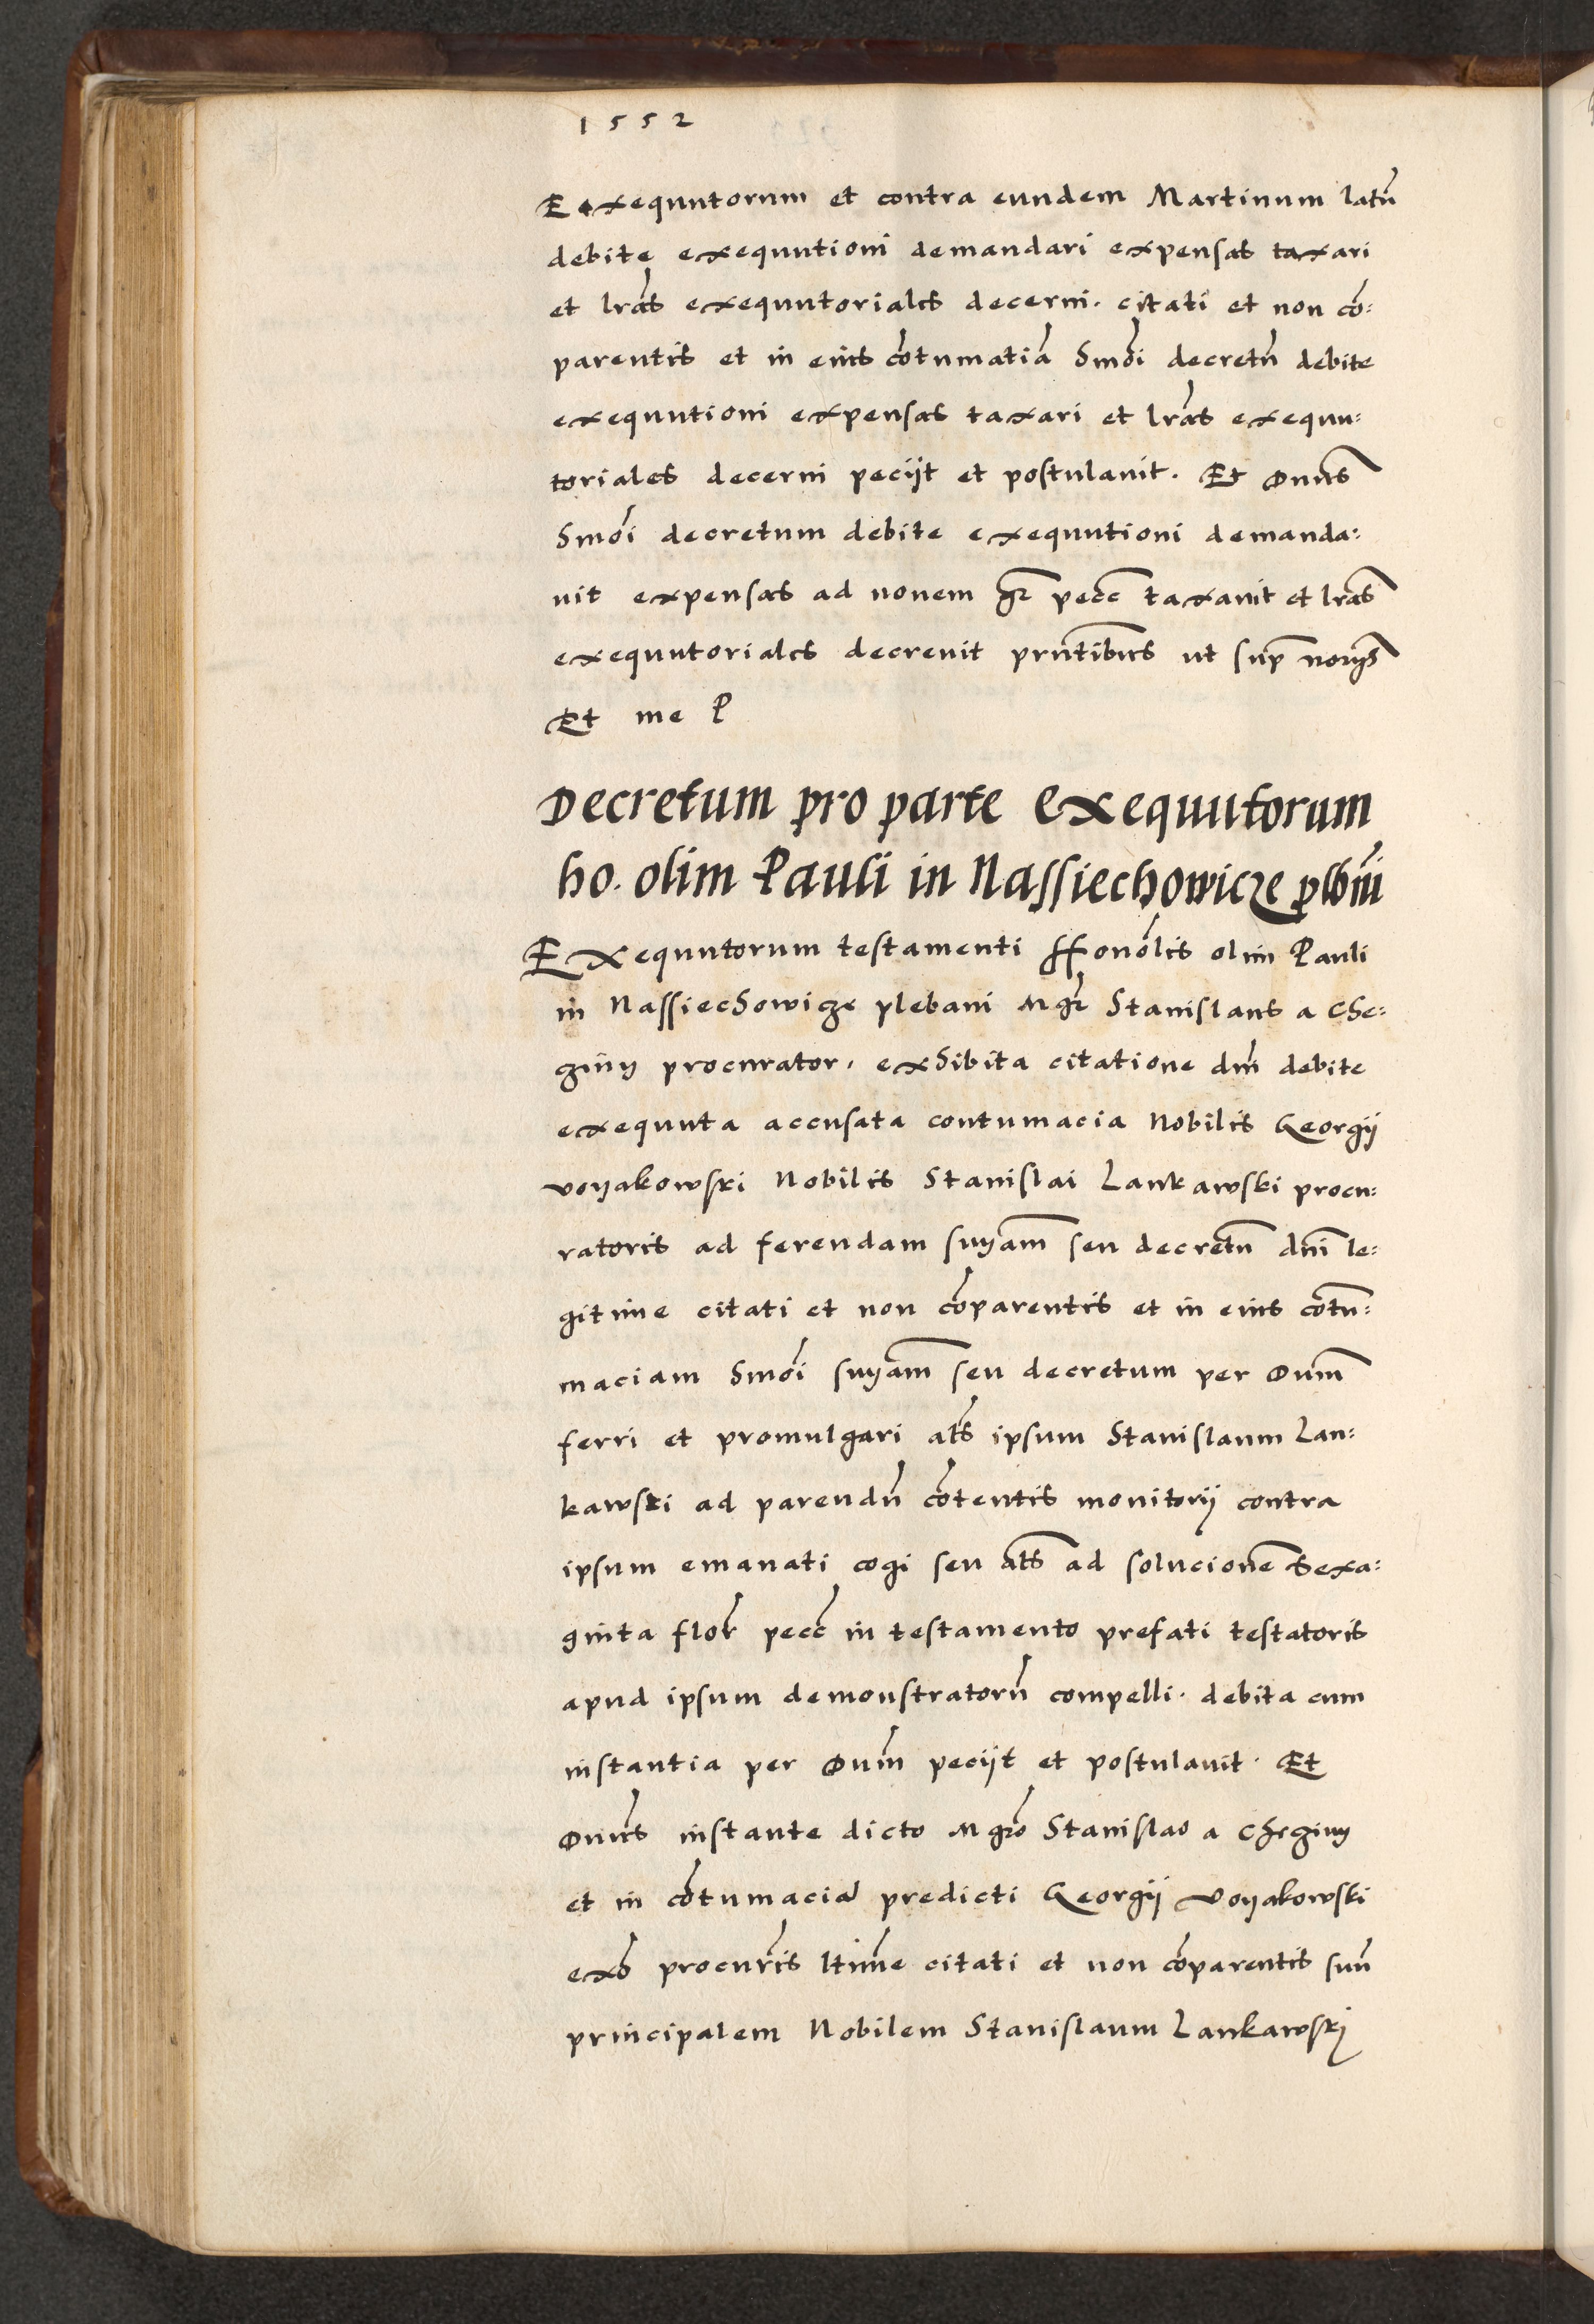 1552
Exequutorum et contra eundem Martinum latū
debite exequutioni demandari expensas taxari
et lrās exequutoriales decerni. citati et non cō:
parentis et in eius cōtumatiā Smōi decretū debite
exequutioni expensas taxari et lrās exequu:
toriales decerni peciit et postulavit. Et Dnus
Smōi decretum debite exequutioni demanda:
vit expensas ad novem gr pecc taxavit et lrās
exequutoriales decrevit prntibus ut sup norijs
Et me P
Decretum pro parte Exequutorum
ho. olim Pauli in Nassiechowicze plbni
Exequutorum testamenti Honōlis olim Pauli
in Nassiechowicze plebani Mgr Stanislaus a Che:
giny procurator. exhibita citatione dm debite
exequuta accusata contumacia Nobilis Georgij
Voyakowski Nobilis Stanislai Lankawski procu:
ratoris ad ferendam snyam seu decretū dni le:
gitime citati et non cōparentis et in eius cōtu:
maciam Smōi snyam seu decretum per Dnum
ferri et promulgari als ipsum Stanislaum Lan:
kawski ad parendū cōtentis monitorij contra
ipsum emanati cogi seu als ad solucionē Sexa:
ginta flor pecc in testamento prefati testatoris
apud ipsum demonstratorū compelli. debita cum
instantia per Dnum peciit et postulavit. Et
Dnus instante dicto Mgro Stanislao a Cheginy
et in cōtumaciā predicti Georgij Voyakowski
exō procuris ltime citati et non cōparentis suū
principalem Nobilem Stanislaum Lankawskj